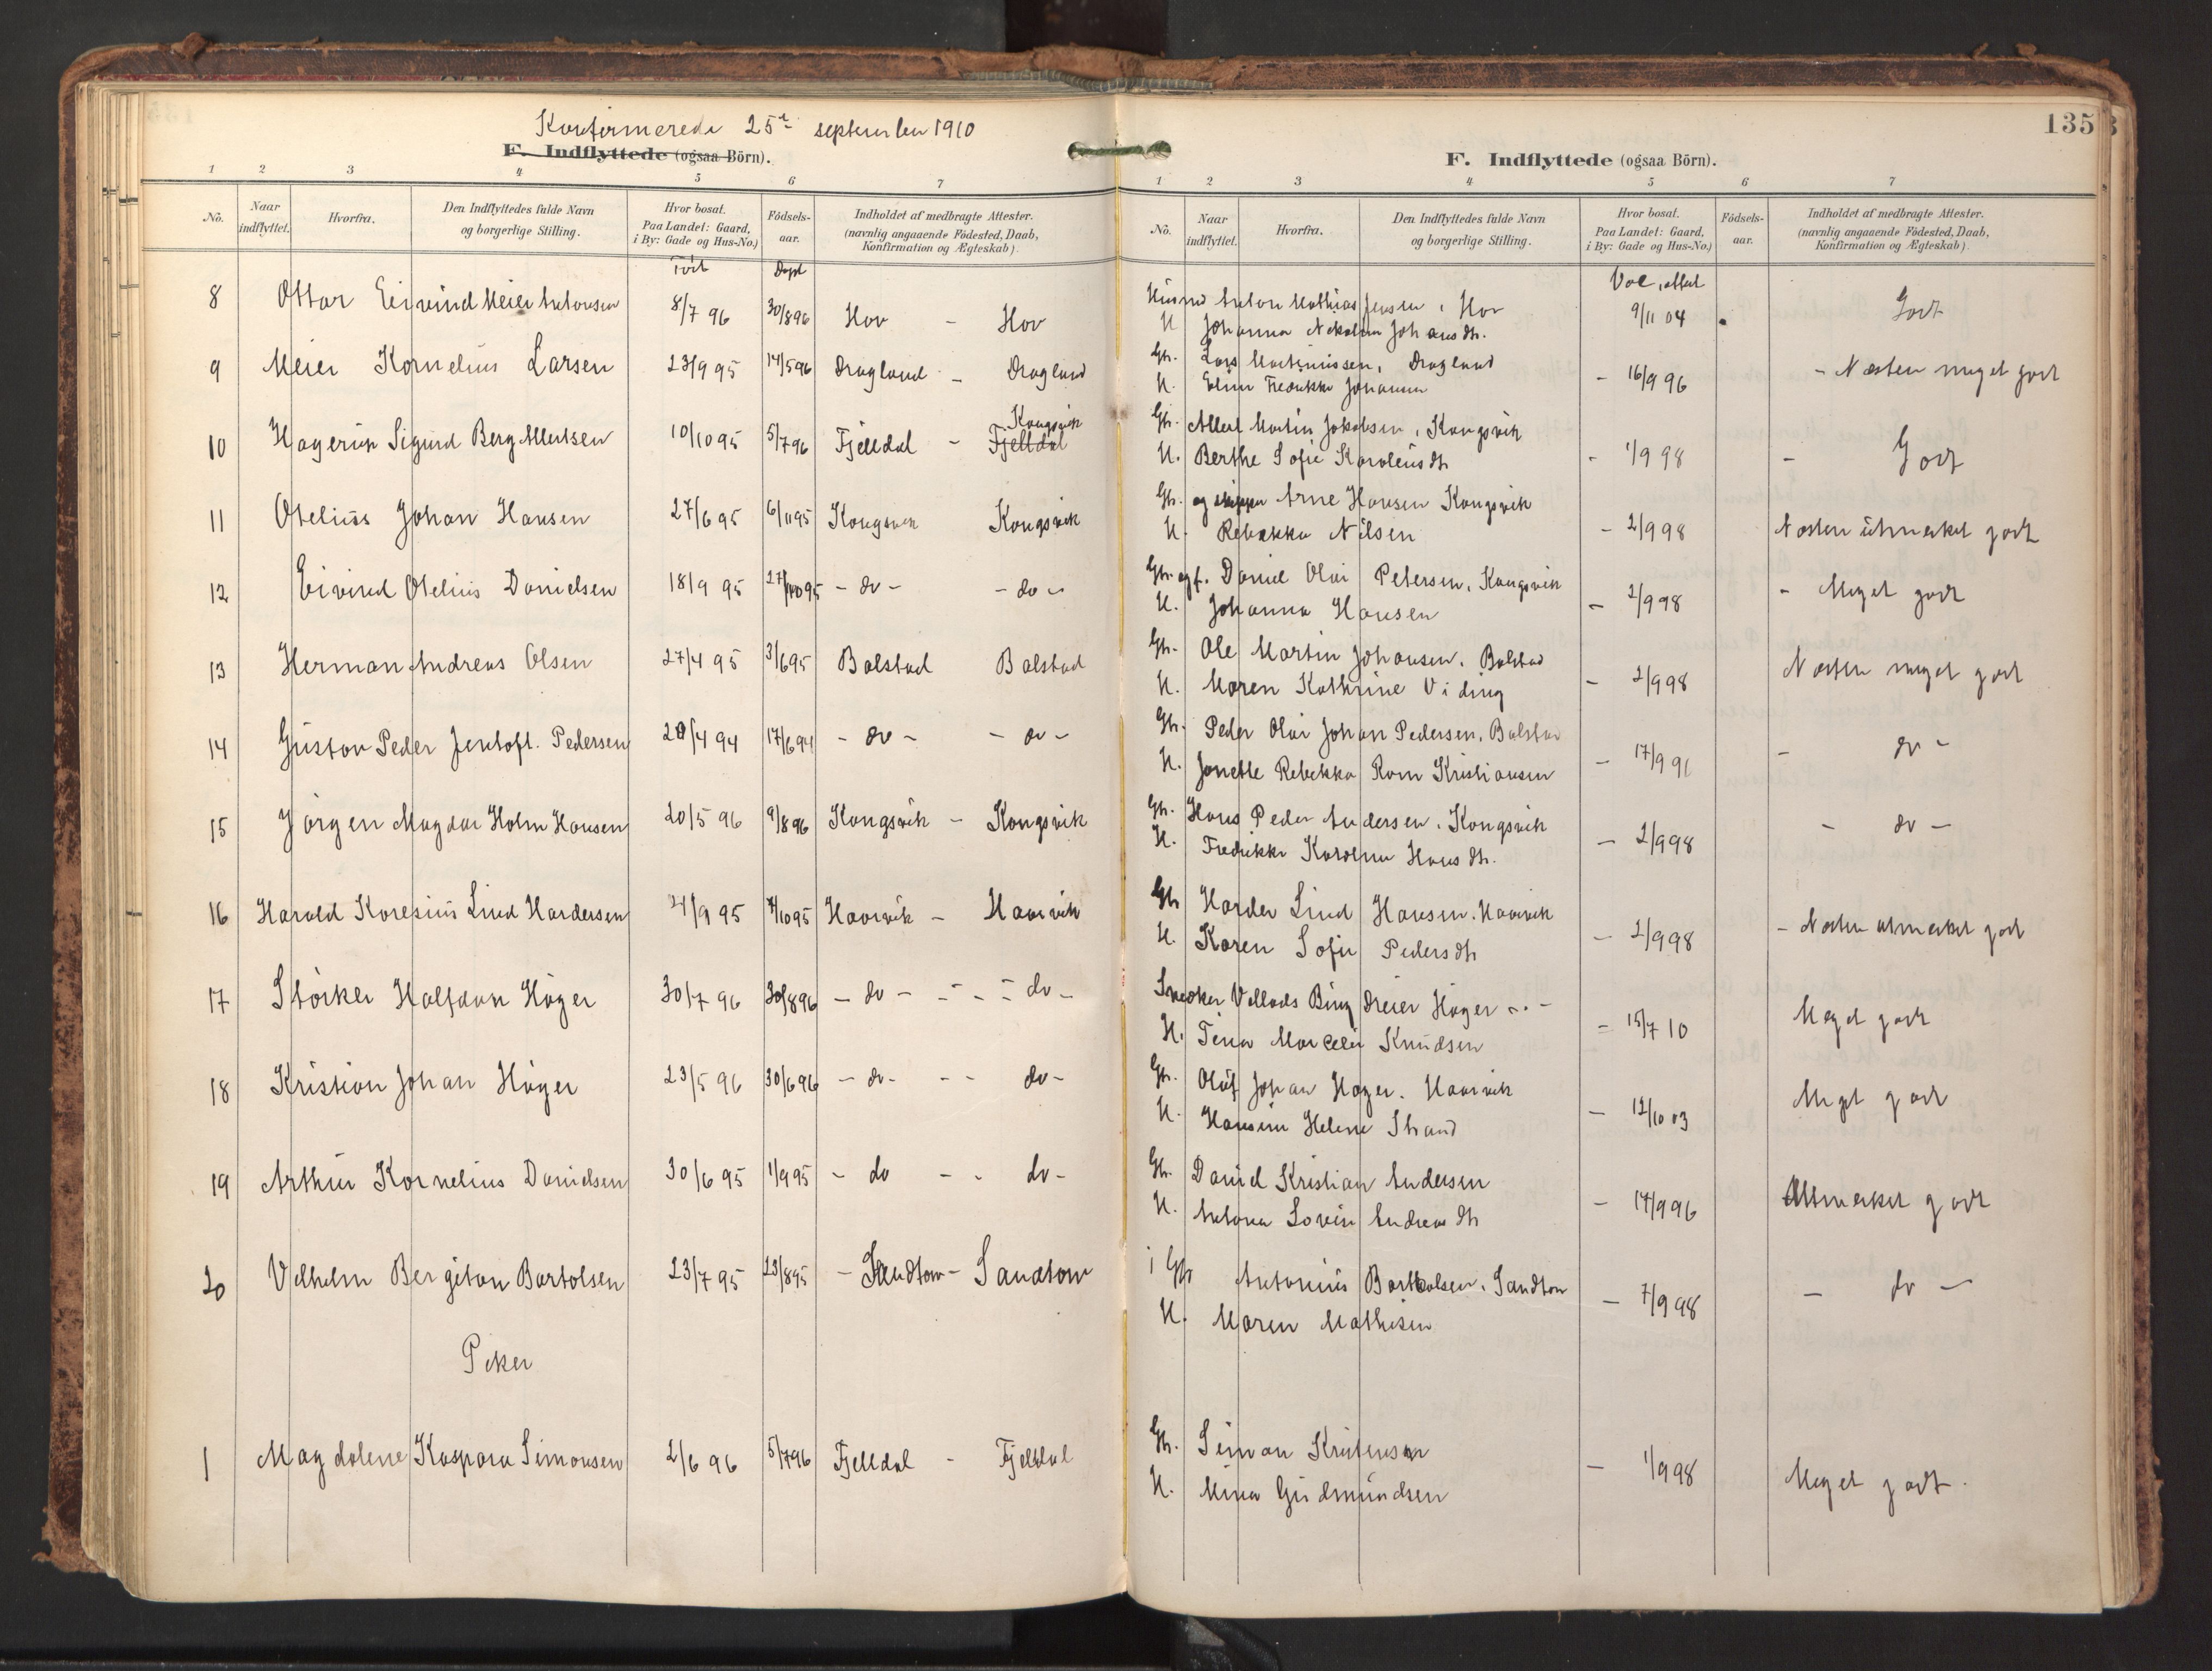 Konfirmerede 25de september 1910
F. Indflyttede (ogsaa Börn).
1 2 3 4 5 6 7
No. Naar indflyttet. Hvorfra. Den Indflyttedes fulde Navn og borgerlige Stilling. Hvor bosat. Paa Landet: Gaard, i By: Gade og Hus-No.) Födsels-aar. Indholdet af medbragte Attester. (navnlig angaaende Födested, Daab, Konfirmation og Ægteskab).
Född Døpt
8 Ottar Eivind Meier Antonsen 8/7 96 30/896 Hov - Hov
9 Meier Kornelius Larsen 23/9 95 14/596 Dragland - Dragland
Kongsvik
10 Hagerup Sigurd Berg Albertsen 10/10 95 5/796 Fjelldal - Fjelldal
11 Otelius Johan Hansen 27/6 95 6/1195 Kongsvik Kongsvik
12 Eivind Otelius Danielsen 18/9 95 27/1095 - do - - do -
13 Herman Andreas Olsen 27/4 95 3/695 Balstad Balstad
14 Gustav Peder Jentoft. Pedersen 28/4 94 17/694 - do - - do -
15 Jörgen Magdar Holm Hansen 20/5 96 9/896 Kongsvik - Kongsvik
16 Harald Koresius Lind Hardersen 21/9 95 7/1095 Haarvik - Haarvik
17 Störker Halfdan Höger 30/7 96 30/896 - do - - - - do -
18 Kristian Johan Höger 23/5 96 30/696 - do - - - do -
19 Arthur Kornelius Danielsen 30/6 95 1/995 - do - - do -
20 Vilhelm Bergiton Bartolsen 23/7 95 23/895 - Sandtorv - Sandtorv
Piker
1 Magdalene Kaspara Simonsen 2/6 96 5/796 Fjelldal - Fjelldal
135
F. Indflyttede (ogsaa Börn).
1 2 3 4 5 6 7
No. Naar indflyttet. Hvorfra. Den Indflyttedes fulde Navn og borgerlige Stilling. Hvor bosat. Paa Landet: Gaard, i By: Gade og Hus-No.) Födsels-aar. Indholdet af medbragte Attester. (navnlig angaaende Födested, Daab, Konfirmation og Ægteskab).
Vac. attest
Husmd Anton Mathias Jensen, Hov 9/11 04 Godt
H. Johanna Nekoline Johansdtr.
Gbr. Lars Martinussen, Dragland
H. Elen Fredrikke Johansen - 16/9 96 - Næsten meget godt
Gbr. Albert Martin Jakobsen, Kongsvik
H. Berthe Sofie Karoliusdtr - 1/9 98 - Godt
Gbr. og skipper Arne Hansen Kongsvik
H. Rebekka Nilsen - 2/998 Næsten utmerket godt
Gbr. og f. Daniel Olai Petersen, Kongsvik
H. Johanna Hansen - 2/998 - Meget godt
Gbr. Ole Martin Johansen. Balstad
H. Maren Kathrine Viding - 2/998 Næsten meget godt
Gbr. Peder Olai Johan Pedersen, Balstad
H. Jonette Rebekka Rom Kristiansen - 17/9 91 - do -
Gbr. Hans Peder Andersen, Kongsvik
H. Fredrikke Karoline Hansdtr. - 2/998 - do -
Gbr Harder Lind Hansen, Haarvik
H. Karen Sofie Pedersdtr - 2/998 - Næsten utmerket godt
Snedker Vellads Bing Dreier Höger - . -
H. Tina Marcelie Knudsen - 15/7 10 Meget godt
Gbr. Oluf Johan Höger. Haarvik
H. Hansine Helene Strand - 12/10 03 Meget godt
Gbr. Daniel Kristian Andersen
H. Antona Lovise Andreasdtr - 14/996 Utmerket godt
i Gbr Antonius Bartholsen, Sandtorv
H. Maren Mathisen - 7/9 98 - do -
Gbr. Simon Kristensen
H. Mina Gudmundsen - 1/998 Meget godt.